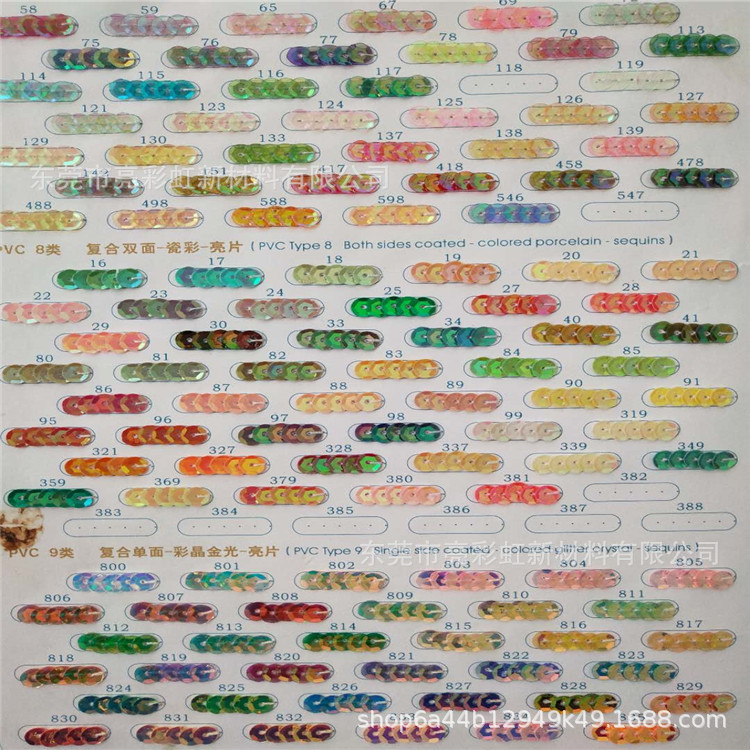 58 59 65 67 69 72
75 76 77 78 79 113
114 115 116 117 118 119
121 123 124 125 126 127
129 130 133 137 138 139
151 417 418 458 478
东莞市亮彩虹新材料有限公司
488 498 588 598 546 547
PVC 8类 复合双面-瓷彩-亮片 (PVC Type 8 Both sides coated - colored porcelain - sequins)
16 17 18 19 20 21
22 23 24 25 27 28
29 30 33 34 40 41
80 81 82 83 84 85
86 87 88 89 90 91
95 96 97 98 99 319
321 327 328 337 339 349
359 369 379 380 381 382
383 384 385 386 387 388
PVC 9类 复合单面-彩晶金光-亮片 (PVC Type 9 Single side coated - colored glitter crystal - sequins)
东莞市亮彩虹新材料有限公司
800 801 802 803 804 805
806 807 808 809 810 811
812 813 814 815 816 817
818 819 820 821 822 823
824 825 826 827 828 829
830 831 832
shop6a44b12949k49.1688.com